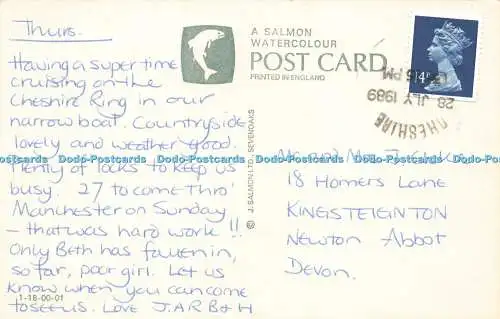 Thurs.
Having a super time
cruising on the
Cheshire Ring in our
narrowboat. Countryside
lovely and weather good.
Plenty of locks to keep us
busy. 27 to come thro'
Manchester on Sunday
- that was hard work!!
Only Beth has fallen in,
so far, poor girl. Let us
know when you can come
to see us. Love J.A R B & H
1-18-00-01
A SALMON
WATERCOLOUR
POST CARD
PRINTED IN ENGLAND
© J. SALMON LTD., SEVENOAKS
14P
PM
28 JLY 1989
CHESHIRE
Mr and Mrs
18 Homers Lane
KINGSTEIGNTON
NEWTON Abbot
DEVON.
Dodo-Postcards Dodo-Postcards Dodo-Postcards Dodo-Postcards Dodo-Postcards